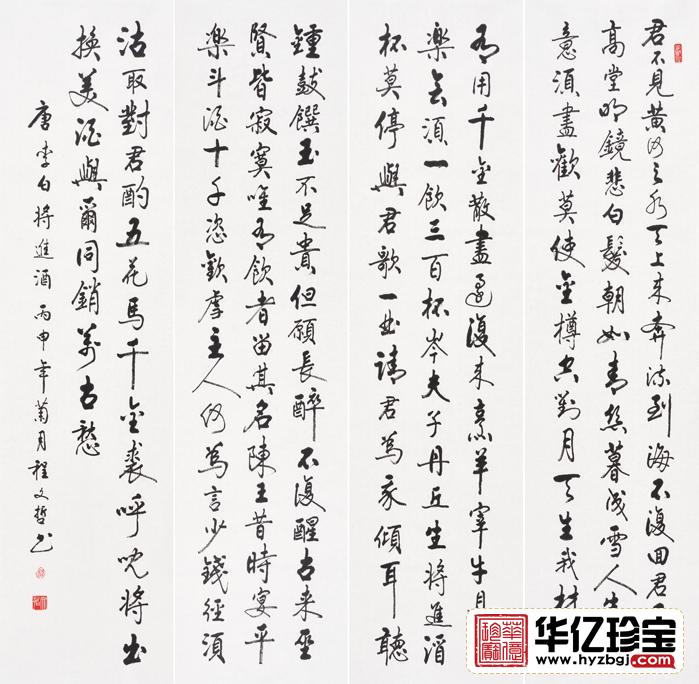 君不見黃河之水天上来奔流到海不復回君
高堂明鏡悲白髮朝如青絲暮成雪人生
意須盡歡莫使金樽空對月天生我材
有用千金散盡還復来烹羊宰牛且
樂會須一飲三百杯岑夫子丹丘生將進酒
杯莫停與君歌一曲請君為我傾耳聽
鍾鼓饌玉不足貴但願長醉不復醒古来聖
賢皆寂寞唯有飲者留其名陳王昔時宴平
樂斗酒十千恣歡虐主人何為言少錢徑須
沽取對君酌五花馬千金裘呼児將出
換美酒與爾同銷萬古愁
唐李白將進酒 丙申年菊月程文哲书
华亿珍宝
www.hyzbgj.com